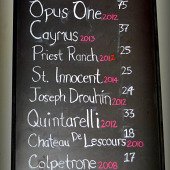 Opus One 2012 75
Caymus 2013 37
Priest Ranch 2012 25
St. Innocent 2014 25
Joseph Drouhin 2012 24
Quintarelli 2012 33
Chateau De Lescours 2010 18
Colpetrone 2008 17